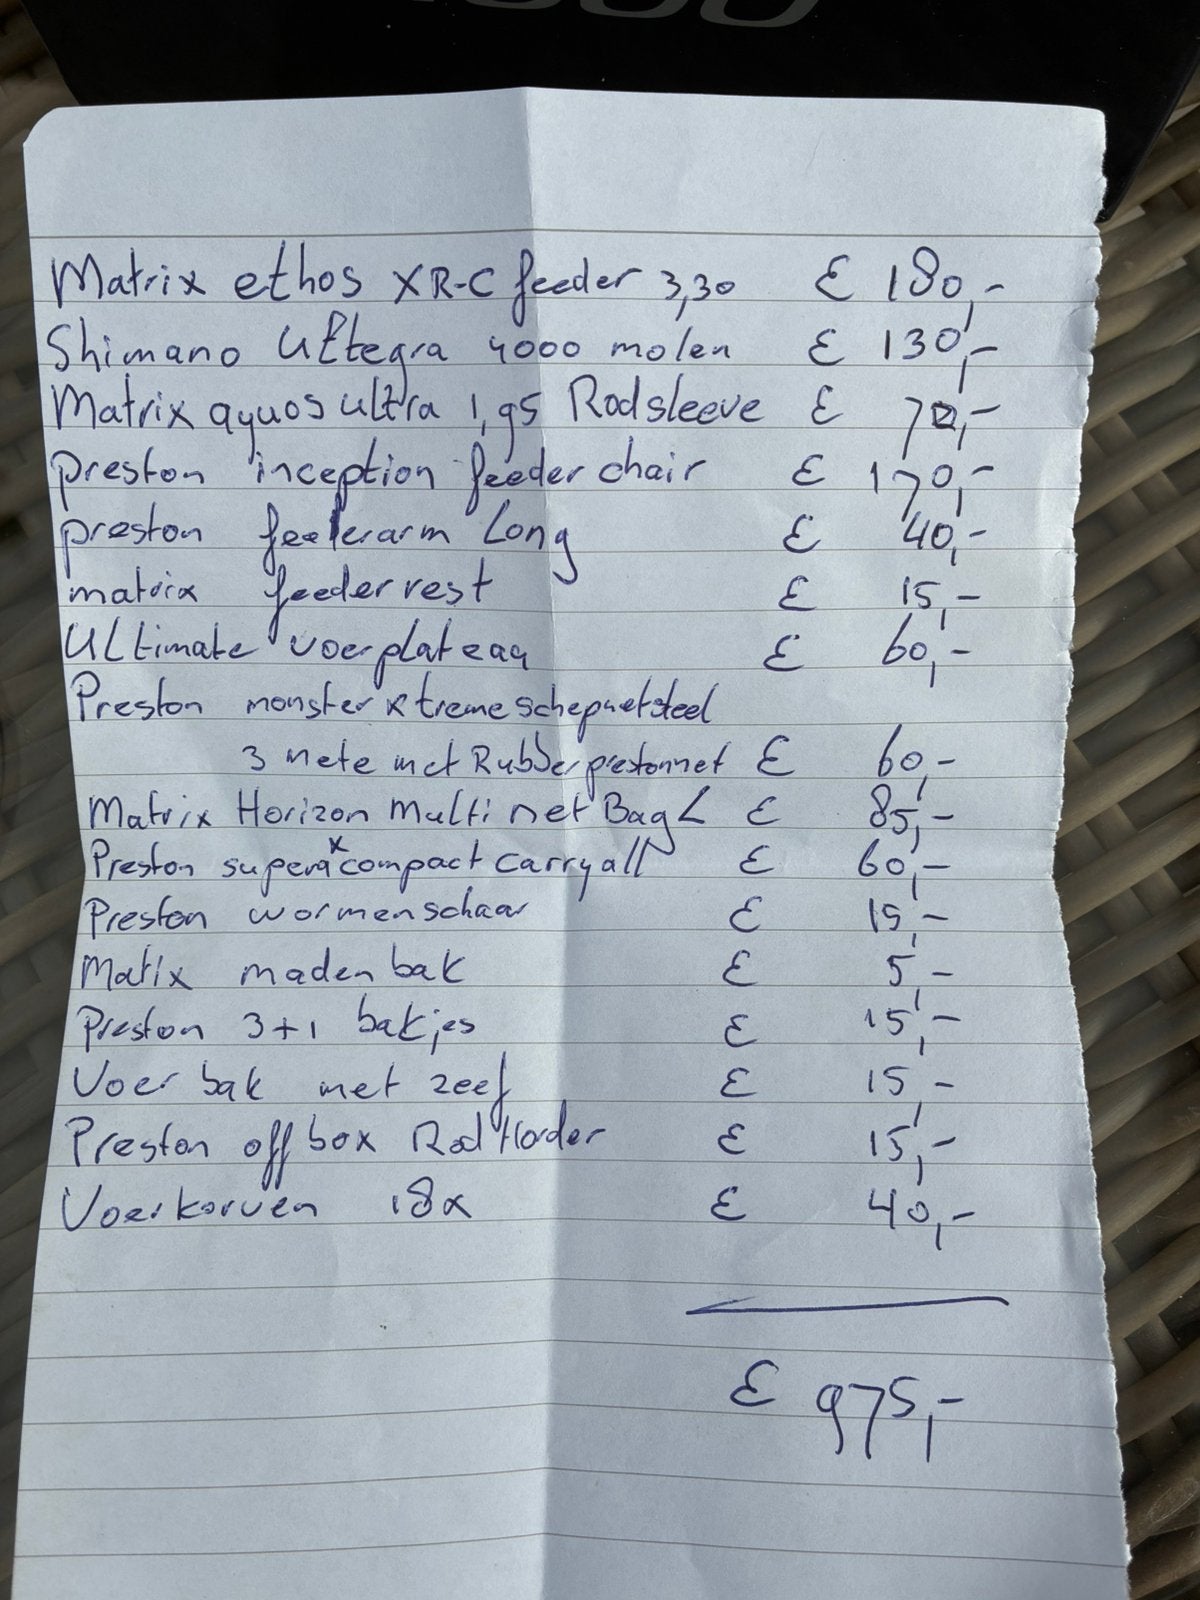 Matrix ethos XR-C feeder 3,30 € 180,-
Shimano Ultegra 4000 molen € 130,-
Matrix aquos ultra 1,95 Rodsleeve € 70,-
preston inception feeder chair € 170,-
preston feederarm Long € 40,-
matrix feeder rest € 15,-
Ultimate voerplateau € 60,-
Preston monster xtreme schepnetsteel
3 mete met Rubber prestonnet € 60,-
Matrix Horizon Multi net Bag L € 85,-
Preston supera x compact carryall € 60,-
Preston wormenschaar € 15,-
Matix maden bak € 5,-
Preston 3+1 bakjes € 15,-
Voer bak met zeef € 15,-
Preston off box Rod Horder € 15,-
Voerkorven 18x € 40,-
€ 975,-